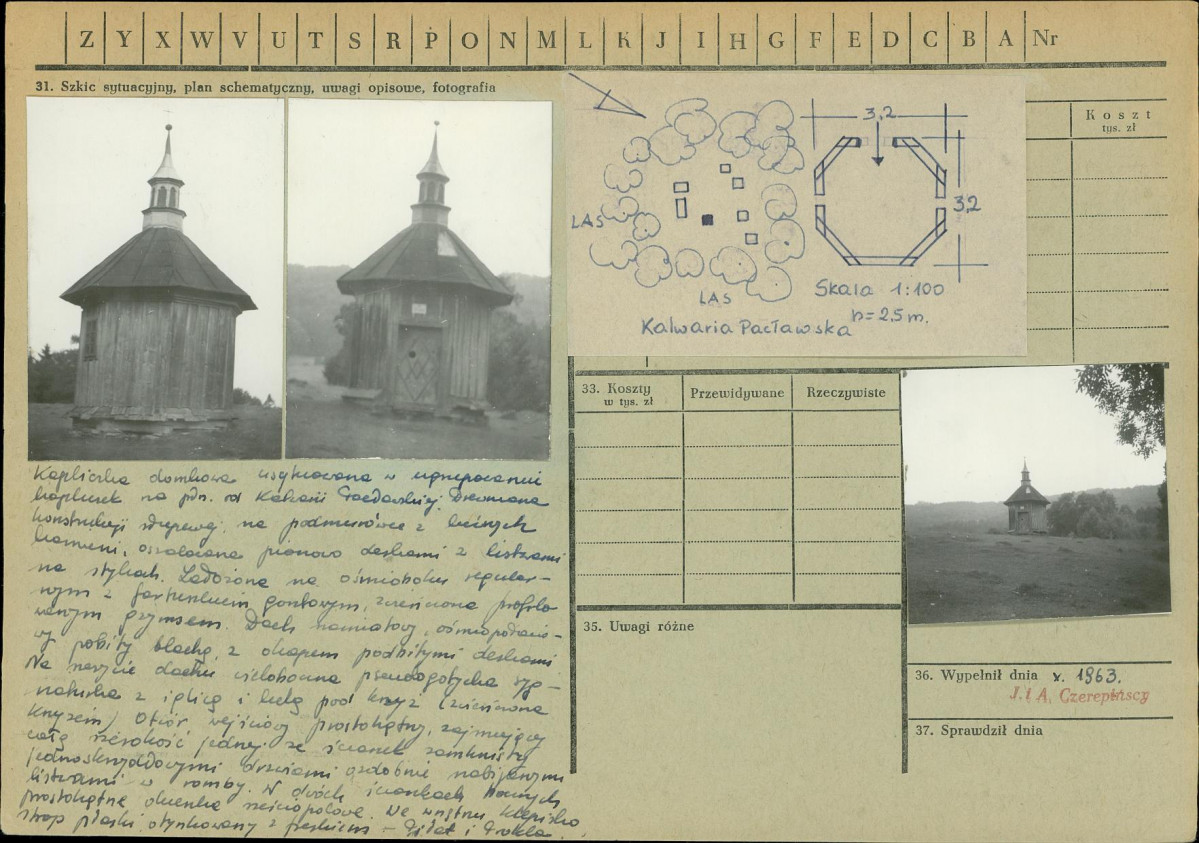 Z Y X W V U T S R P O N M L K J I H G F E D C B A Nr
31. Szkic sytuacyjny, plan schematyczny, uwagi opisowe, fotografia
Koszt
tys. zł
3,2
3,2
LAS
LAS
Skala 1:100
h=2,5 m.
Kalwaria Pacławska
Kapliczka domkowa usytuowana w ugrupowaniu
kapliczek na płn. od Kalwarii Pacławskiej. Drewniana
konstrukcji słupowej, na podmurówce z luźnych
kamieni, oszalowana pionowo deskami z listwami
na stykach. Założona na ośmioboku regular-
nym z fartuchem gontowym, zwieńczona profilo-
wanym gzymsem. Dach namiotowy, ośmiopołacio-
wy pobity blachą, z okapem podbitymi deskami
Na szczycie dachu wieloboczna pseudogotycka syg-
naturka z iglicą i kulą pod krzyż (zwieńczona
krzyżem) Otwór wejściowy prostokątny, zajmujący
całą szerokość jednej ze ścianek zamknięty
jednoskrzydłowymi drzwiami ozdobnie nabijanymi
listwami w romby. W dwóch ściankach bocznych
prostokątne okienka sześciopolowe. We wnętrzu klepisko
strop płaski otynkowany z freskiem - Piłat i
33. Koszty
w tys. zł
Przewidywane
Rzeczywiste
35. Uwagi różne
36. Wypełnił dnia x. 1963.
J. i A. Czerepińscy
37. Sprawdził dnia